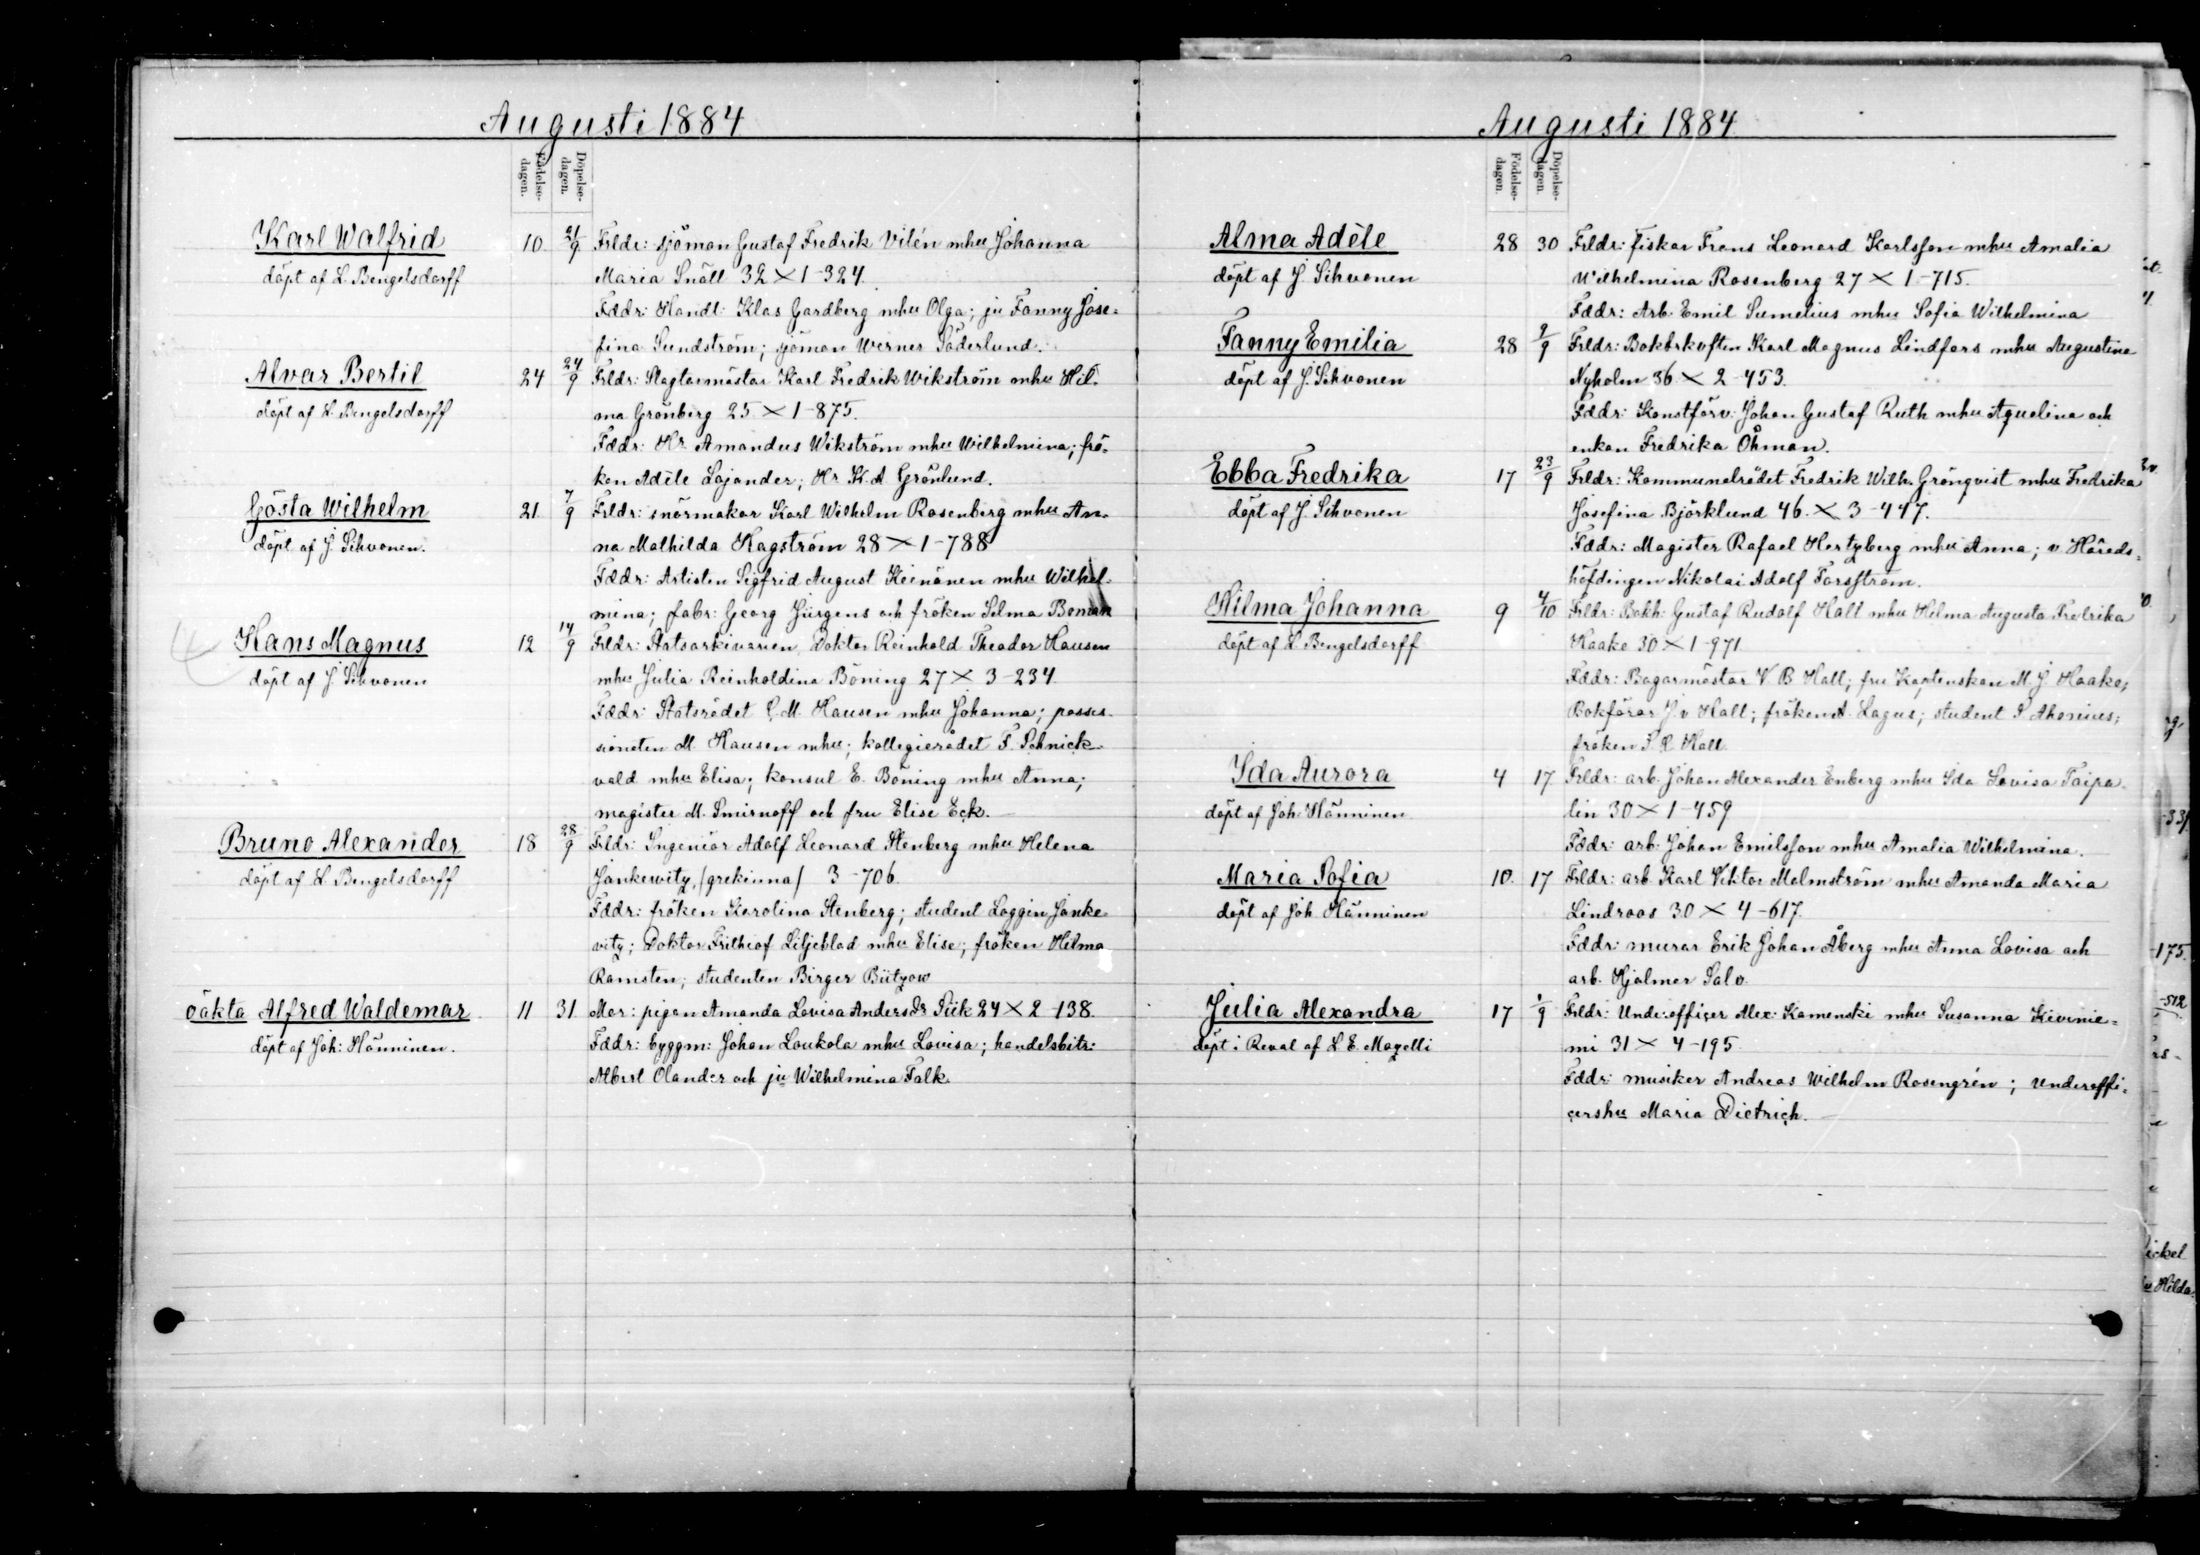 Augusti 1884
Födelse-dagen.
Döpelse-dagen.
Karl Walfrid 10 21/9 Frldr: sjöman Gustaf Fredrik Vilén mhu Johanna
döpt af L. Bengelsdorff Maria Snäll 32 × 1-324.
Fddr: Handl: Klas Gardberg mhu Olga; ju Fanny Jose-
fina Sundström; sjöman Werner Söderlund.
Alvar Bertil 24 24/9 Frldr: Slagtarmästar Karl Fredrik Wikström mhu Hil-
döpt af L. Bengelsdorff ma Grönberg 25 × 1-875.
Fddr: Hr Amandus Wikström mhu Wilhelmina; frö-
ken Adèle Lojander; Hr K. A Grönlund.
Gösta Wilhelm 21 7/9 Frldr: snörmakar Karl Wilhelm Rosenberg mhu An-
döpt af J. Sihvonen. na Mathilda Hagström 28 × 1-788
Fddr: Artisten Sigfrid August Keinänen mhu Wilhel-
mina; fabr: Georg Jürgens och fröken Selma Boman
Hans Magnus 12 14/9 Frldr: Statsarkivarien, Doktor Reinhold Theodor Hausen
döpt af J Sihvonen mhu Julia Reinholdina Böning 27 × 3-234
Fddr: Statsrådet C. M. Hausen mhu Johanna; posses-
sionaten M. Hausen mhu; kollegierådet F. Schnick-
vald mhu Elisa; konsul E. Böning mhu Anna;
magister M. Smirnoff och fru Elise Eck.
Bruno Alexander 18 28/9 Frldr: Ingeniör Adolf Leonard Stenberg mhu Helena
döpt af L. Bengelsdorff Jankewitz, /grekinna/ 3-706.
Fddr: fröken Karolina Stenberg; student Loggin Janke-
vitz; Doktor Frithiof Liljeblad mhu Elise; fröken Hilma
Ramsten; studenten Birger Bützow
oäkta Alfred Waldemar 11 31 Mor: pigan Amanda Lovisa Andersdr Piik 24 × 2-138.
döpt af Joh: Hänninen. Fddr: byggm: Johan Loukola mhu Lovisa; handelsbitr:
Albert Olander och ju Wilhelmina Falk.
Augusti 1884
Födelse-dagen.
Döpelse-dagen.
Alma Adèle 28 30 Frldr: fiskar Frans Leonard Karlsson mhu Amalia
döpt af J Sihvonen Wilhelmina Rosenberg 27 × 1-715.
Fddr: Arb. Emil Sumelius mhu Sofia Wilhelmina
Fanny Emilia 28 9/9 Frldr: Karl Magnus Lindfors mhu Augustina
döpt af J. Sihvonen Nyholm 36 × 2-453.
Fddr: Konstförv: Johan Gustaf Ruth mhu Aquelina och
enkan Fredrika Öhman.
Ebba Fredrika 17 23/9 Frldr: Kommunalrådet Fredrik Wilh. Grönqvist mhu Fredrika
döpt af J. Sihvonen Josefina Björklund 46. × 3-447.
Fddr: Magister Rafael Hertzberg mhu Anna; v. Härads-
höfdingen Nikolai Adolf Forsström.
Hilma Johanna 9 4/10 Frldr: Bokh: Gustaf Rudolf Hall mhu Hilma Augusta Fredrika
döpt af L. Bengelsdorff Haake 30 × 1-971
Fddr: Bagarmästar V. B Hall; fru Kaptenskan M. J. Haake;
Bokförar J. v Hall; fröken A. Lagus; student S. Ahonius;
fröken S. R. Hall.
Ida Aurora 4 17 Frldr: arb. Johan Alexander Enberg mhu Ida Lovisa Taipa-
döpt af Joh: Hänninen lin 30 × 1-459
Fddr: arb: Johan Emilsson mhu Amalia Wilhelmina.
Maria Sofia 10. 17 Frldr: arb. Karl Viktor Malmström mhu Amanda Maria
döpt af Joh. Hänninen Lindroos 30 × 4-617
Fddr: murar Erik Johan Åberg mhu Anna Lovisa och
arb. Hjalmar Salo.
Julia Alexandra 17 1/9 Frldr: Underofficer Alex: Kamenski mhu Susanna Kivinie-
döpt i Reval af L. E. Mozelli mi 31 × 4-195
Fddr: musiker Andreas Wilhelm Rosengrén; Underoffi-
cershu Maria Dietrich.
-33
-175.
-512
ickel
Hilda